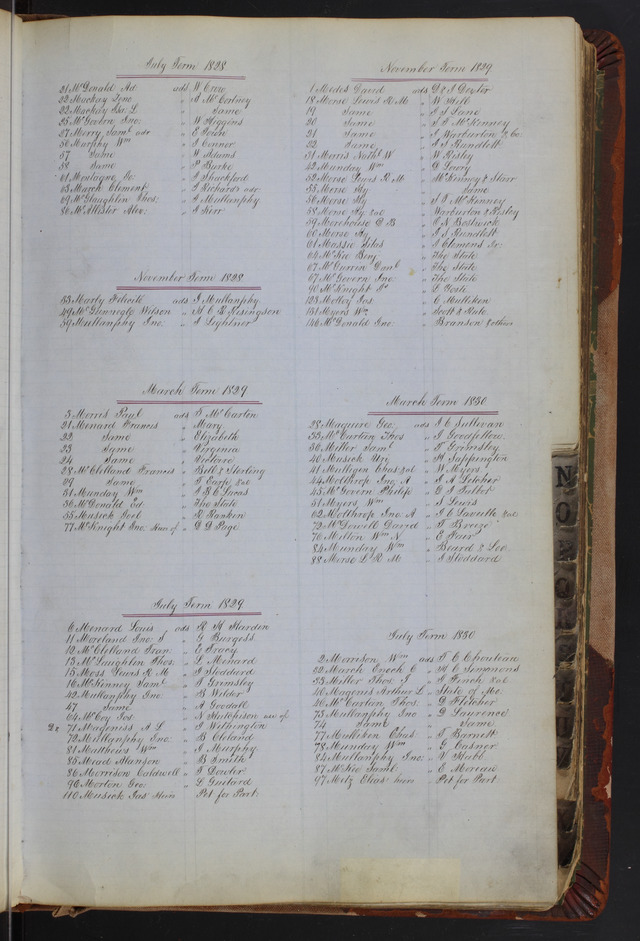 July Term 1828
21 McDonald Ad ads W Crow
22 Mackay Jno " A McCartney
22 Mackay Isa. L " Same
25 McGovern Jno: " W Higgins
27 Merry Saml adr " E Town
36 Murphy Wm " J Connor
37 Same " W Adams
38 Same " P Burke
61 Montague Jo: " J Shackford
63 March Clement " G Richards adr
69 McGlaughlin Thos: " A Mullanphy
86 McAllister Alex: " A Kerr
November Term 1828
33 Marly Felicité ads J Mullanphy
49 McGlannegle Wilson " H C R Risingson
59 Mullanphy Jno: " A Lightner
March Term 1829
5 Morris Paul ads D McCartin
21 Menard Francis " Mary
22 Same " Elizabeth
23 Same " Virginia
24 Same " Victoire
28 McClelland Francis " Bell & Sterling
29 Same " T Earp &al
31 Munday Wm " J B C Lucas
36 McDonald Ed " The State
55 Musick Joel " R Rankin
77 McKnight Jno: " G D Page
July Term 1829
6 Menard Louis ads R H Harden
11 Moreland Jno: S " G Burgess
12 McClelland Fran: " E Tracy
13 McLaughlin Thos: " L Menard
15 Moss Lewis R M " J Stoddard
16 McKinney Saml " T Grimsley
42 Mullanphy Jno: " B Wilder
47 Same " A Goodall
64 McCoy Jos " N Hutchison use of
De 71 Magenniss A L " J Withington
72 Mullanphy Jno: " B Cleland
81 Matthews Wm " J Murphy
85 Mead Alanson " B Smith
86 Morrison Caldwell " J Dowler
96 Morton Geo: " L Guitard
110 Musick Jas heirs Pet for Part:
November Term 1829
1 Meder David ads G & J Doxter
18 Morse Lewis R M " W Hill
19 Same " J S Lane
20 Same " J S McKenney
21 Same " J Warburton & Co.
22 Same " J S Rundlett
31 Morris Nathl W " W Risley
42 Munday Wm " B Gerry
52 Morse Lewis R M " McKinney & Starr
55 Morse Hy " Same
56 Morse Hy " J S McKenney
58 Morse Hy &al " Warburton & Risley
59 Morehouse C B " E N Bostwick
60 Morse Hy " J S Rundlett
61 Massie Silas " J Clemens Jr:
64 McKee Benj " The State
67 McGurren Danl " The State
67 McGovern Jno: " The State
90 McKnight Jno " L Foote
123 Melloy Jas " C Mulliken
131 Myers Wm " Scott & Rule
146 McDonald Jno: " Branson & others
March Term 1830
28 Maguire Geo: ads J C Sullivan
33 McCartin Thos " J Goodfellow
36 Miller Saml " T Grimsley
40 Musick Hy " H Sappington
41 Mulligan Chas &al " W Myers
44 Molthrop Jno: A " J A Letcher
45 McGovern Philip " G S Talbot
51 Myers Wm " J Lewis
62 Molthrop Jno: A " J C Laveille &al
72 McDowell David " T Breeze
76 Melton Wm N " E Fair
84 Munday Wm " Beard & Lee
88 Morse L R M " J Stoddard
July Term 1830
2 Morrison Wm ads T C Chouteau
32 March Enoch C " H C Simmonds
33 Miller Thos J " H Finch &al
40 Magenis Arthur L " State of Mo
40 McCartin Thos: " D Fletcher
73 Mullanphy Jno " D Laurence
74 Same " Same
77 Mulliken Chas " T Barnett
78 Munday Wm " G Casner
84 Mullanphy Jno: " V Stabb
87 McKee Saml " E Moreau
97 Metz Elias heirs " Pet for Part
N
O